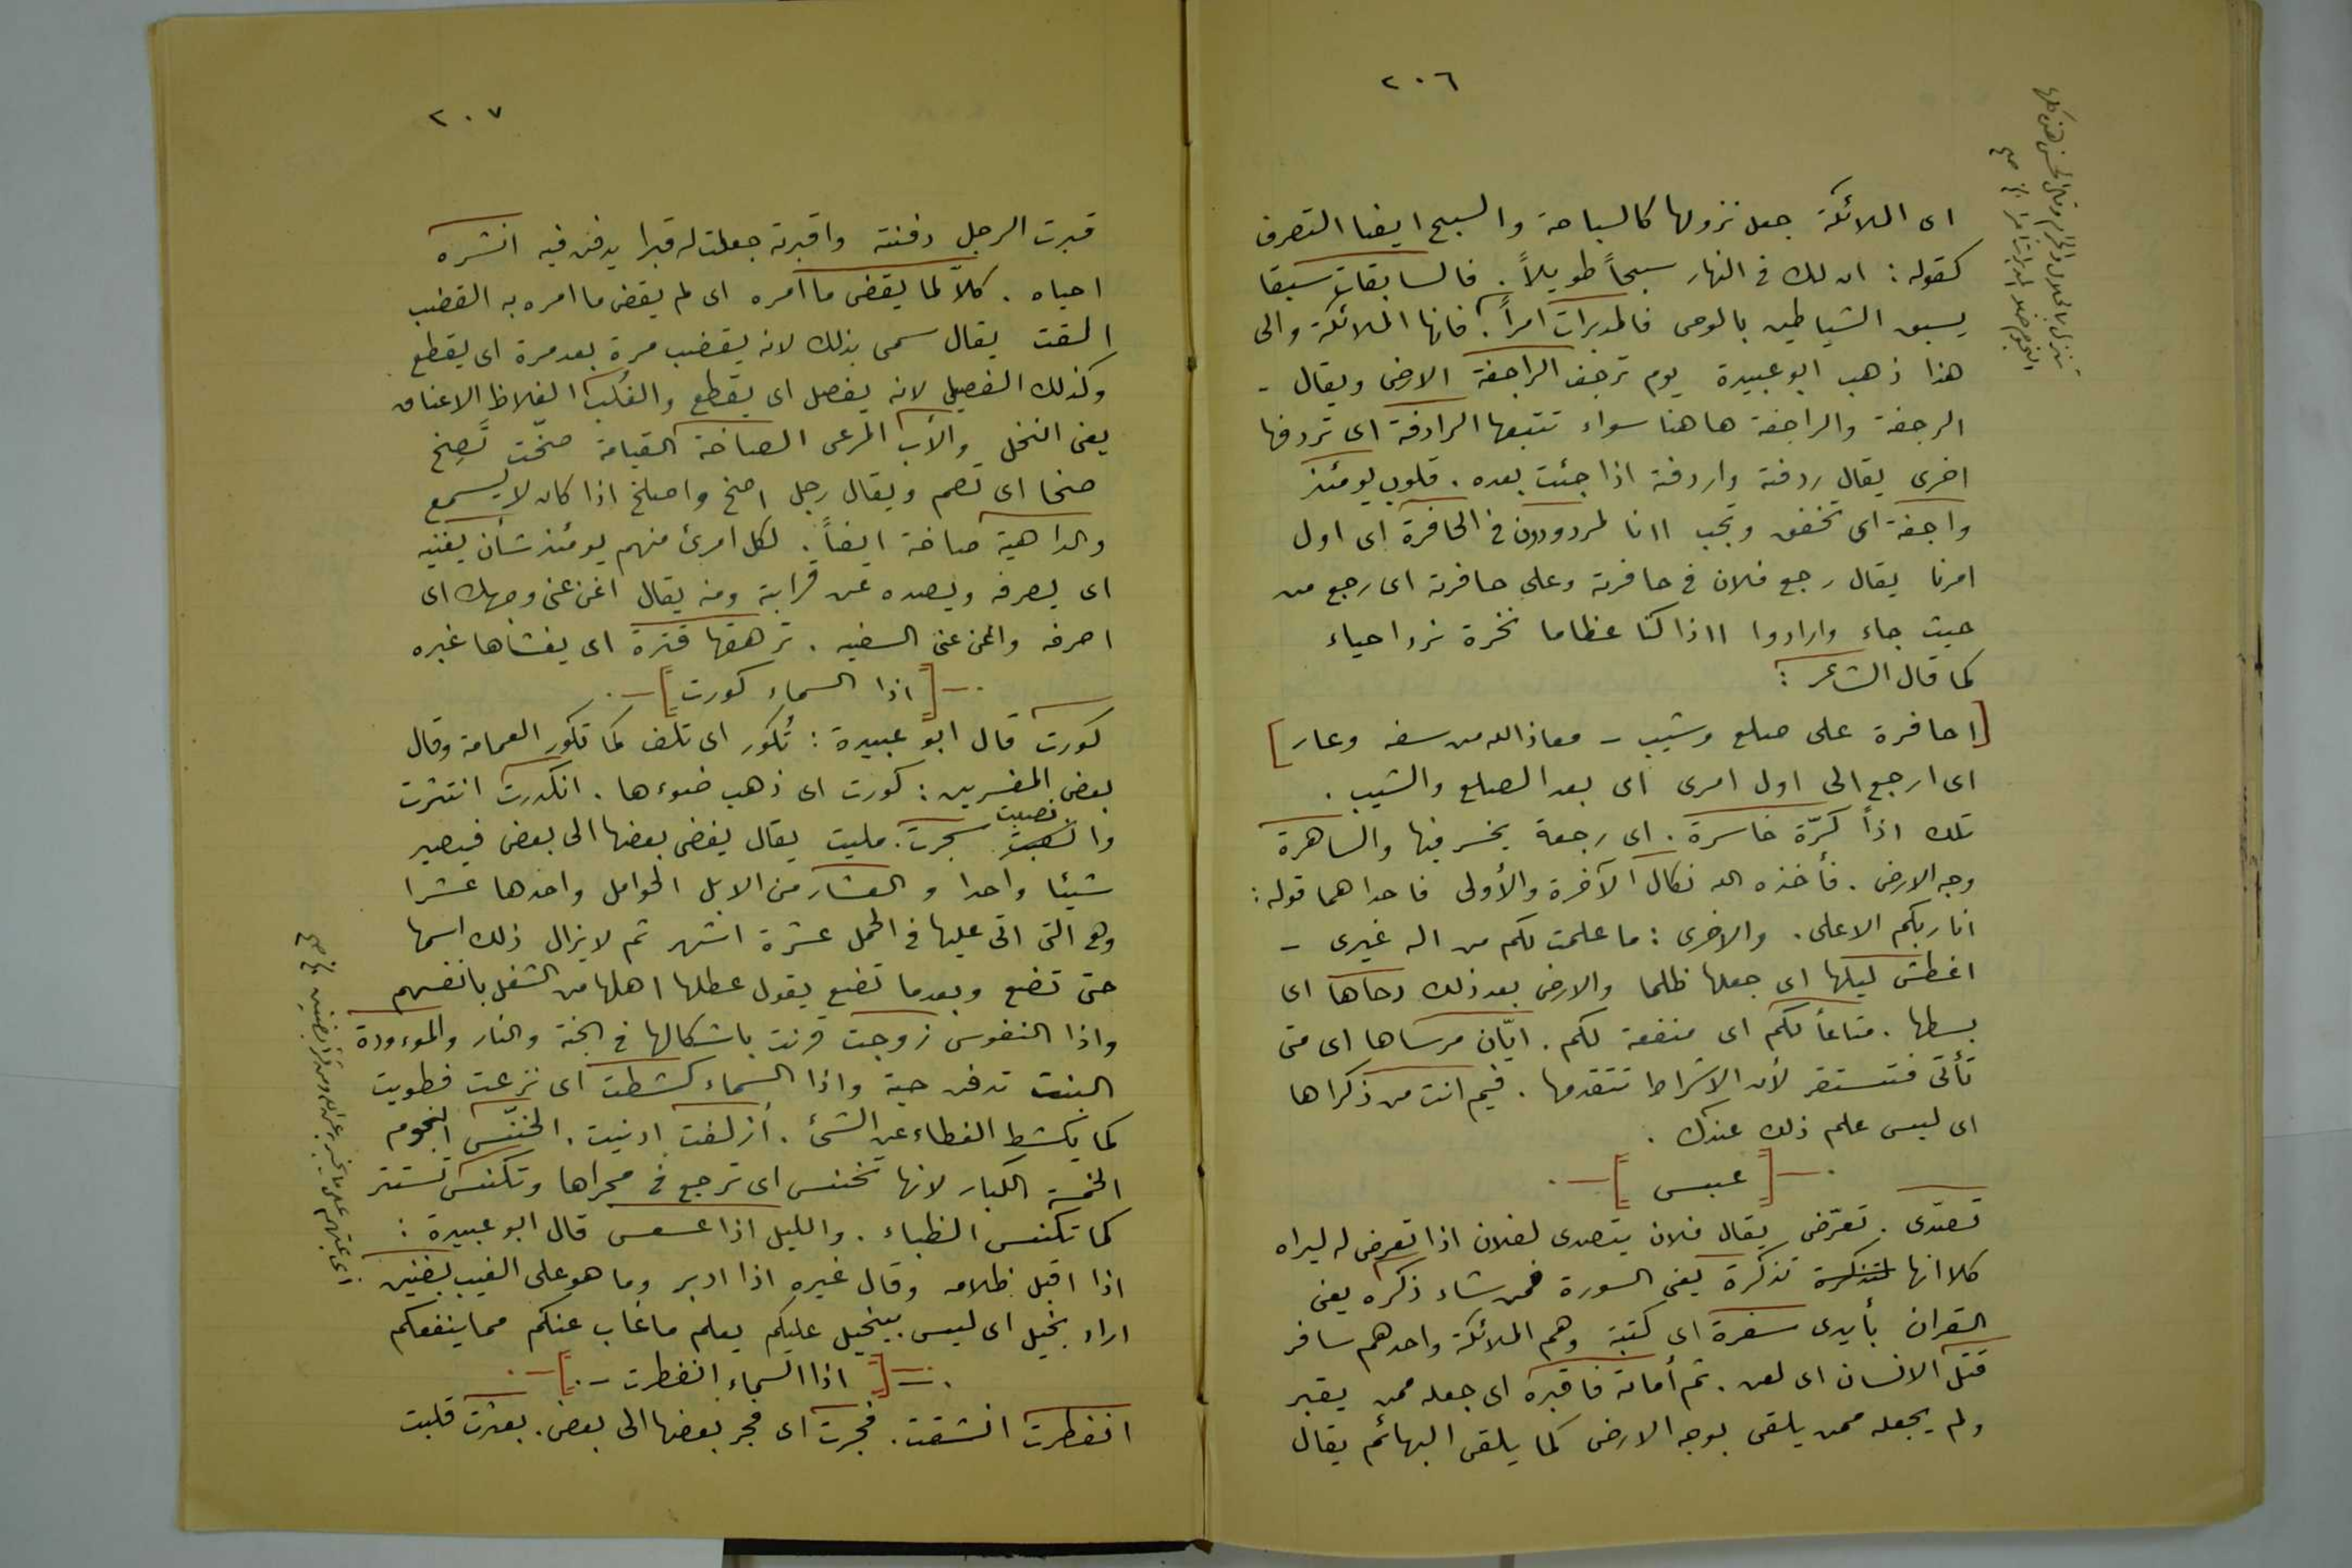 ٢٠٦
اى الملائكة جعل نزولها كالسباحة والسبح ايضا التصرف
كقوله : ان لك فى النهار سبحاً طويلاً . فالسابقات سبقا
يسبق الشياطين بالوحى فالمدبرات امراً . فانها الملائكة والى
هذا ذهب ابو عبيدة يوم ترجف الراجفة الارض ويقال -
الرجفة والراجفة هاهنا سواء تتبعها الرادفة اى تردفها
اخرى يقال ردفته واردفته اذا جئت بعده . قلوب يومئذ
واجفة اى تخفق وتجب اانا لمردودون فى الحافرة اى اول
امرنا يقال رجع فلان فى حافرته وعلى حافرته اى رجع من
حيث جاء وارادوا ااذا كنا عظاما نخرة نرد احياء
كما قال الشاعر :
[احافرة على صلع وشيب - معاذ الله من سفه وعار]
اى ارجع الى اول امرى اى بعد الصلع والشيب .
تلك اذاً كرّة خاسرة . اى رجعة يخسر فيها والساهرة
وجه الارض . فأخذه الله نكال الآخرة والأولى فاحداهما قوله :
انا ربكم الاعلى . والاخرى : ما علمت لكم من اله غيرى -
اغطش ليلها اى جعلها ظلما والارض بعد ذلك دحاها اى
بسطها . متاعاً لكم اى منفعة لكم . ايّان مرساها اى متى
تأتى فتستقر لأن الاشراط تتقدمها . فيم انت من ذكراها
اى ليس علم ذلك عندك .
[عبس]
تصدّى . تعرّض يقال فلان يتصدى لفلان اذا تعرض له ليراه
كلا انها لتذكرة تذكرة يعنى السورة فمن شاء ذكره يعنى
القران بأيدى سفرة اى كتبة وهم الملائكة واحدهم سافر
قتل الانسان اى لعن . ثم أماته فاقبره اى جعله ممن يقبر
ولم يجعله ممن يلقى بوجه الارض كما يلقى البهائم يقال
٢٠٧
قبرت الرجل دفنته واقبرته جعلت له قبرا يدفن فيه انشره
احياه . كلاّ لما يقض ما امره اى لم يقض ما امره به القضب
القت يقال سمى بذلك لانه يقضب مرة بعد مرة اى يقطع
وكذلك الفصيل لانه يفصل اى يقطع والغُلب الغلاظ الاعناق
يعنى النخل والأب المرعى الصاخة القيامة صخّت تَصِخ
صخا اى تصم ويقال رجل اصخ واصلخ اذا كان لا يسمع
والداهية صاخة ايضاً . لكل امرئ منهم يومئذ شأن يغنيه
اى يصرفه ويصده عن قرابته ومنه يقال اغن عنى وجهك اى
اصرفه واغن عنى السفيه . ترهقها قترة اى يغشاها غبره
[اذا السماء كورت]
كورت قال ابو عبيدة : تُكور اى تلف كما تكور العمامة وقال
بعض المفسرين : كورت اى ذهب ضوءها . انكدرت انتثرت
وانصبت سجرت . مليت يقال يفضى بعضها الى بعض فيصير
شيئا واحدا و العشار من الابل الحوامل واحدها عشرا
وهى التى اتى عليها فى الحمل عشرة اشهر ثم لا يزال ذلك اسمها
حتى تضع وبعدما تضع يقول عطلها اهلها من الشغل بانفسهم
واذا النفوس زوجت قرنت باشكالها فى الجنة والنار والموءودة
البنت تدفن حية واذا السماء كشطت اى نزعت فطويت
كما يكشط الغطاء عن الشئ . أزلفت ادنيت . الخنّس النجوم
الخمسة الكبار لانها تخنس اى ترجع فى مجراها وتكنس تستتر
كما تكنس الظباء . والليل اذا عسعس قال ابو عبيدة :
اذا اقبل ظلامه وقال غيره اذا ادبر وما هو على الغيب بضنين
اراد بخيل اى ليس ببخيل عليكم يعلم ما غاب عنكم مما ينفعكم
[اذا السماء انفطرت]
انفطرت انشقت . فجرت اى فجر بعضها الى بعض . بعثرت قلبت